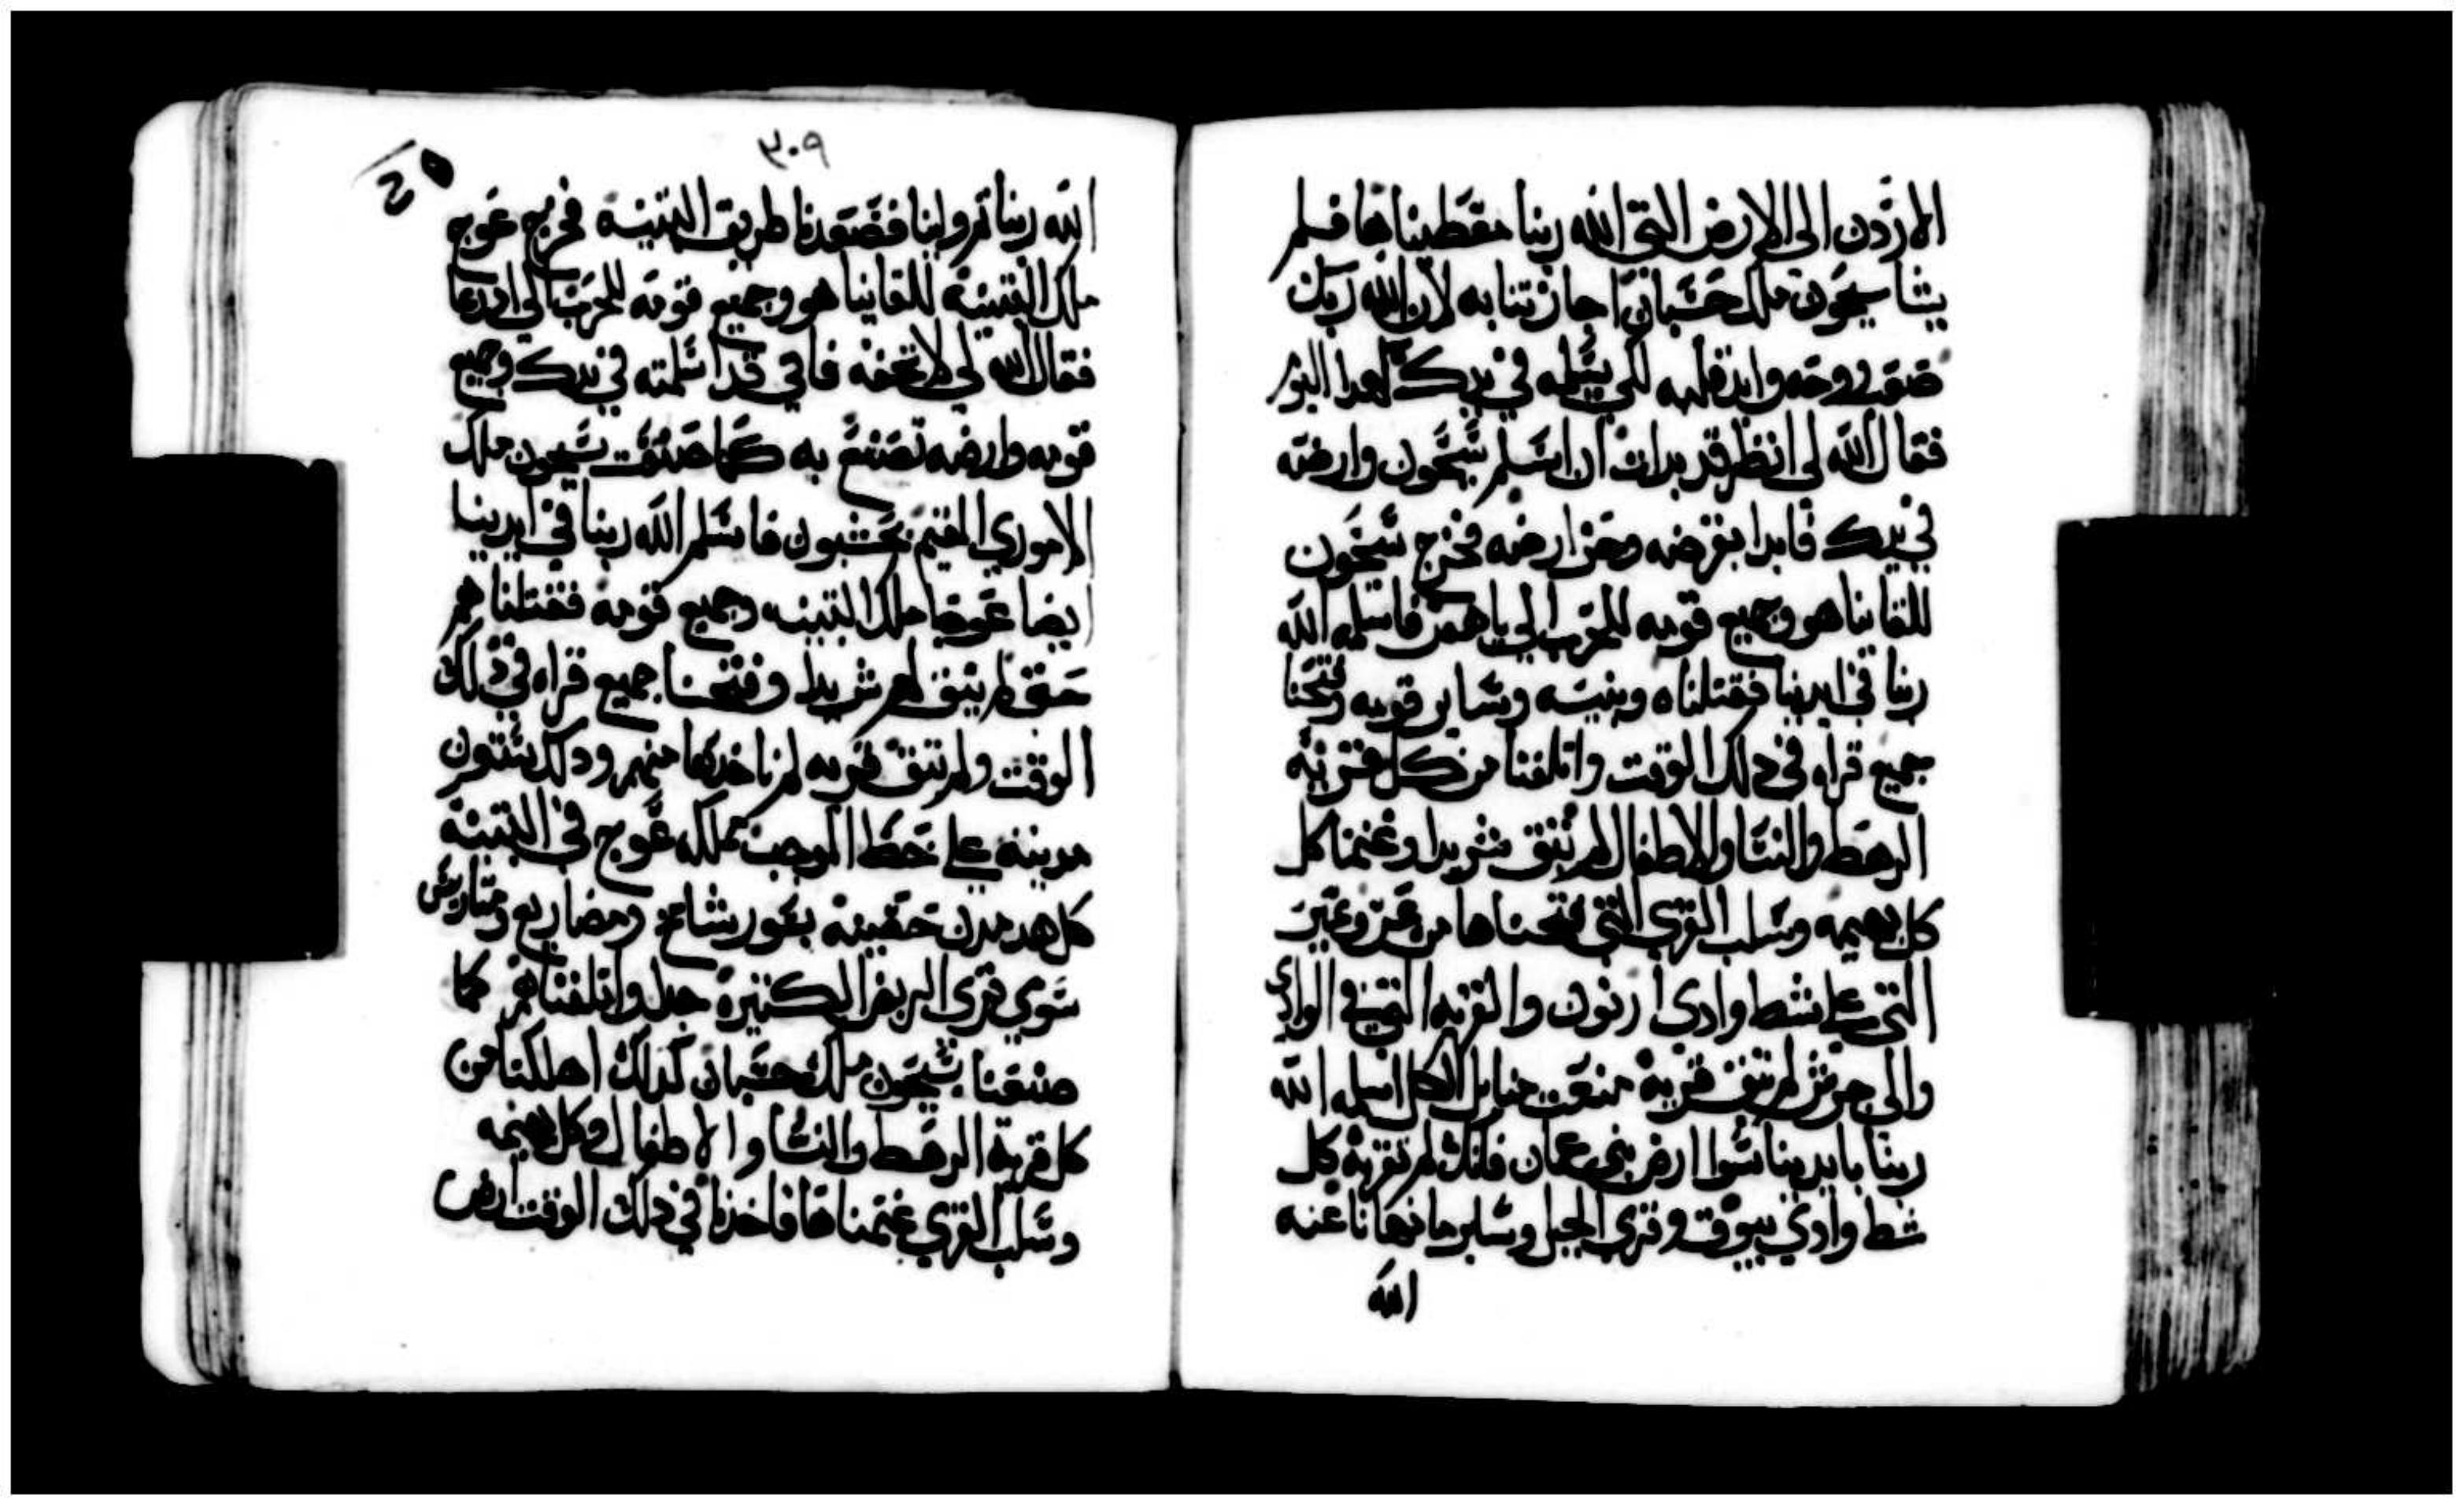 الاردن الى الارض التي الله ربنا معطيناها فلم
يشا سيحون ملك حشبان اجازتنا به لان الله ربك
صعب روحه وايد قلبه لكي يسلمه في يدك كهذا اليوم
فقال الله لي انظر قد بدات ان اسلم سيحون وارضه
في يدك فابدا بقرضه وحز ارضه فخرج سيحون
للقاينا هو وجميع قومه للحرب الي ياهص فاسلمه الله
ربنا في ايدينا فقتلناه وبنيه وساير قومه وفتحنا
جميع قراه في ذلك الوقت واتلفنا من كل قريه
الرهط والنسا والاطفال لم نبق شريدا وغنمنا كل
كل بهيمه وسلب القري التي فتحناها من عروعير
التي علي شط وادي ارنون والقريه التي في الوادي
والى جرش لم تبق قرية منعت حنا بل الكل اسلمه الله
ربنا بايدينا سوا ارض بني عمان فانك لم تقربه كل
شط وادي يبوق وقري الجبل وساير ما نهانا عنه
الله
٣٠٩
الله ربنا ثم ولينا فصعدنا طريق البتنيه فخرج عوج
ملك البتنية للقاينا هو وجميع قومه للحرب الي ادرعا
فقال الله لي لا تخفه فاني قد اسلمته في يدك وجميع
قومه وارضه تصنع به كما صنعت بسيحون ملك
الاموري المقيم بحشبون فاسلم الله ربنا في ايدينا
ايضا عوجا ملك البتنيه وجميع قومه فقتلناهم
حتى لم يبق لهم شريدا وفتحنا جميع قراه في ذلك
الوقت ولم تبق قريه لم ناخذها منهم وذلك ستون
مدينه علي خط الموجب مملكه عوج في البتنية
كل هده مدن حصينه بسور شامخ ومصاريع ومتاريس
سوي قري الربض الكتيرة جدا واتلفناهم كما
صنعنا بسيحون ملك حشبان كذلك اهلكنا من
كل قرية الرهط والنسا والاطفال وكل بهيمه
وسلب القري غنمناها فاخذنا في ذلك الوقت ارض